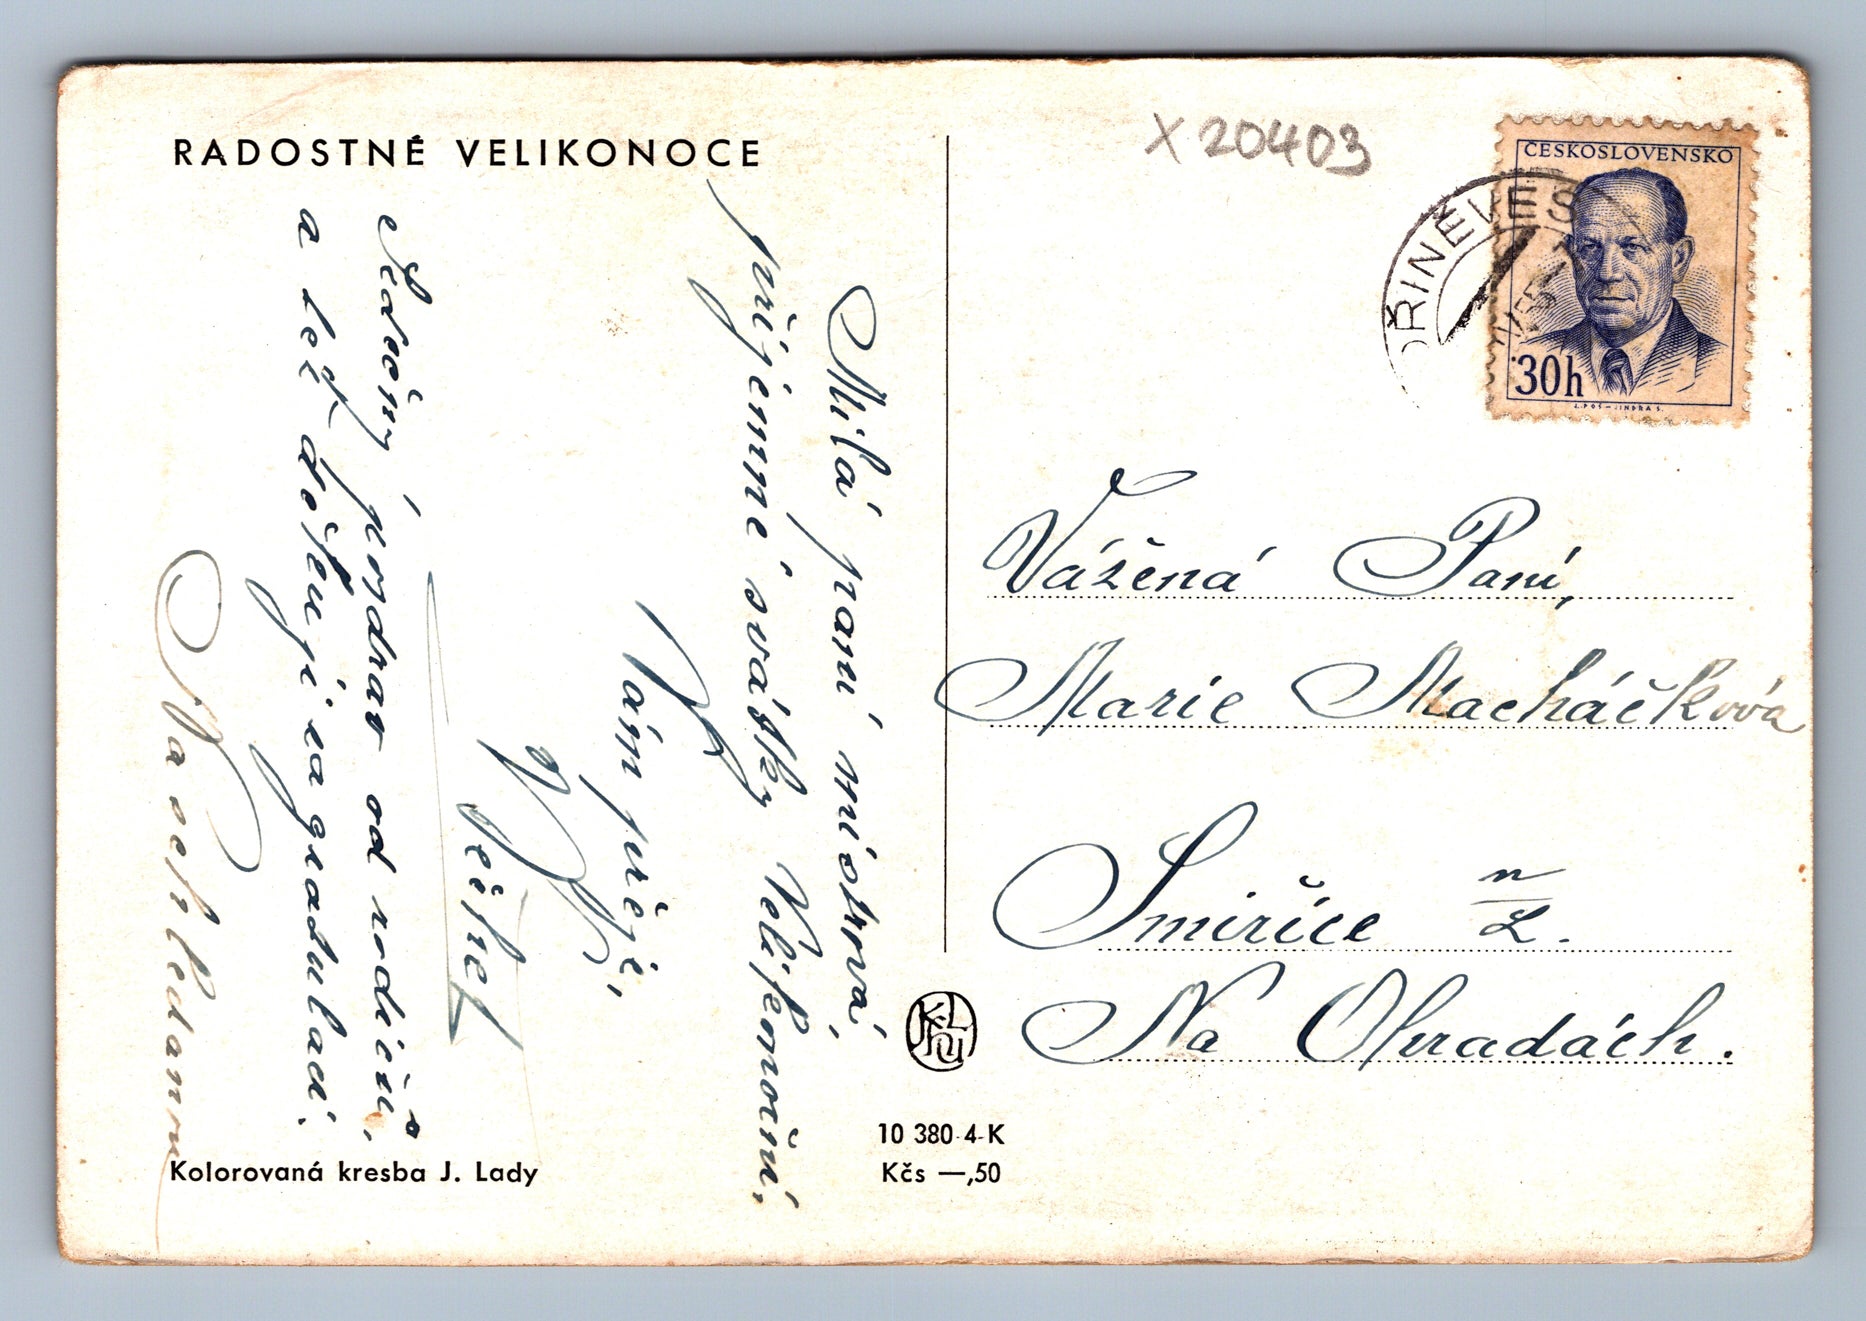 RADOSTNÉ VELIKONOCE
Milá paní mistrová,
příjemné svátky Velikonoční,
Vám přeje,
Srdečný pozdrav od rodičů,
a též děkuji za gratulaci.
Na shledanou
Kolorovaná kresba J. Lady
X 20403
ČESKOSLOVENSKO
30h
J.POŠ-JINDRA S.
ŘINĚVES
Vážená Paní,
Marie Macháčková
Smiřice n/L.
Na Ohradách.
10 380-4-K
Kčs —,50